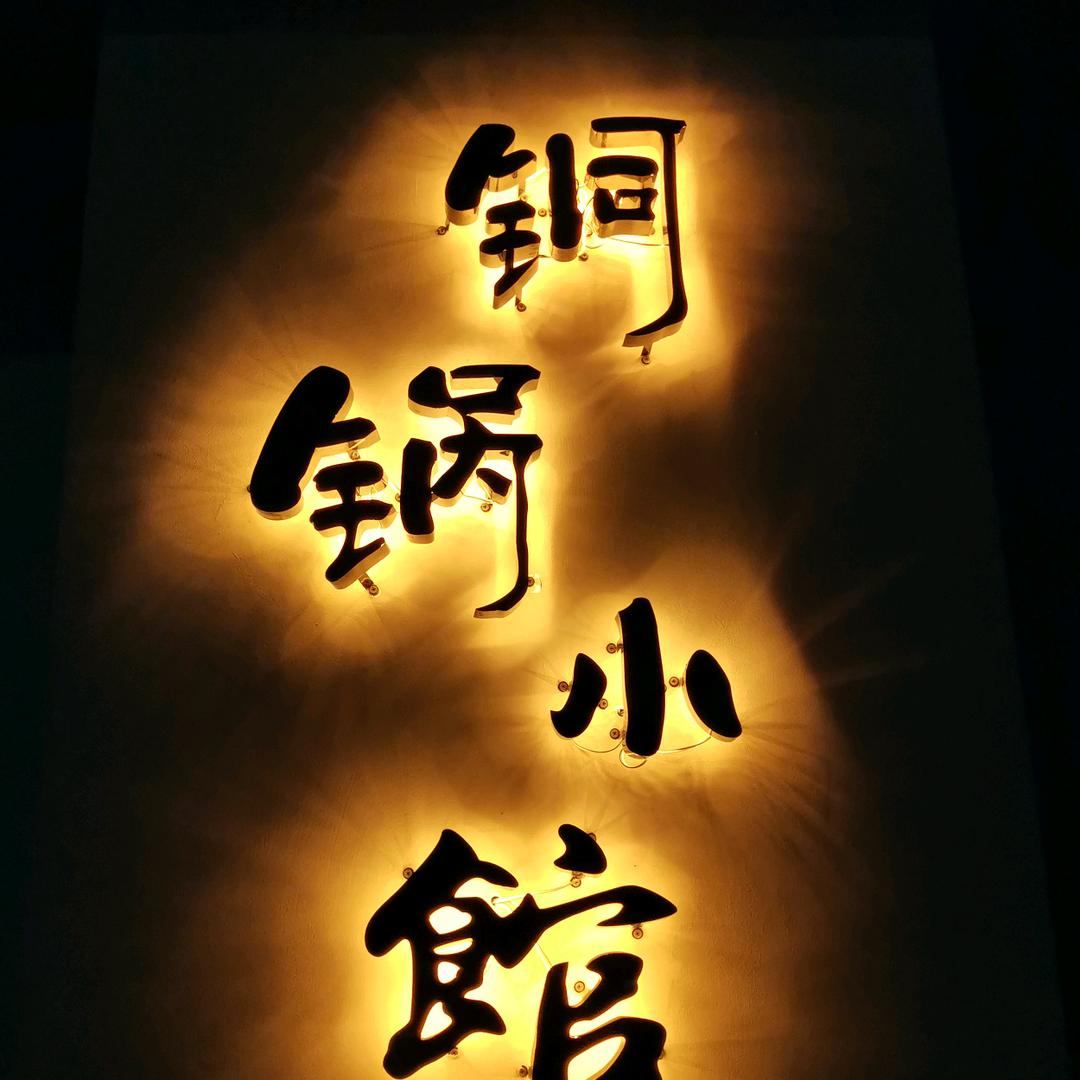 铜
锅
小
館